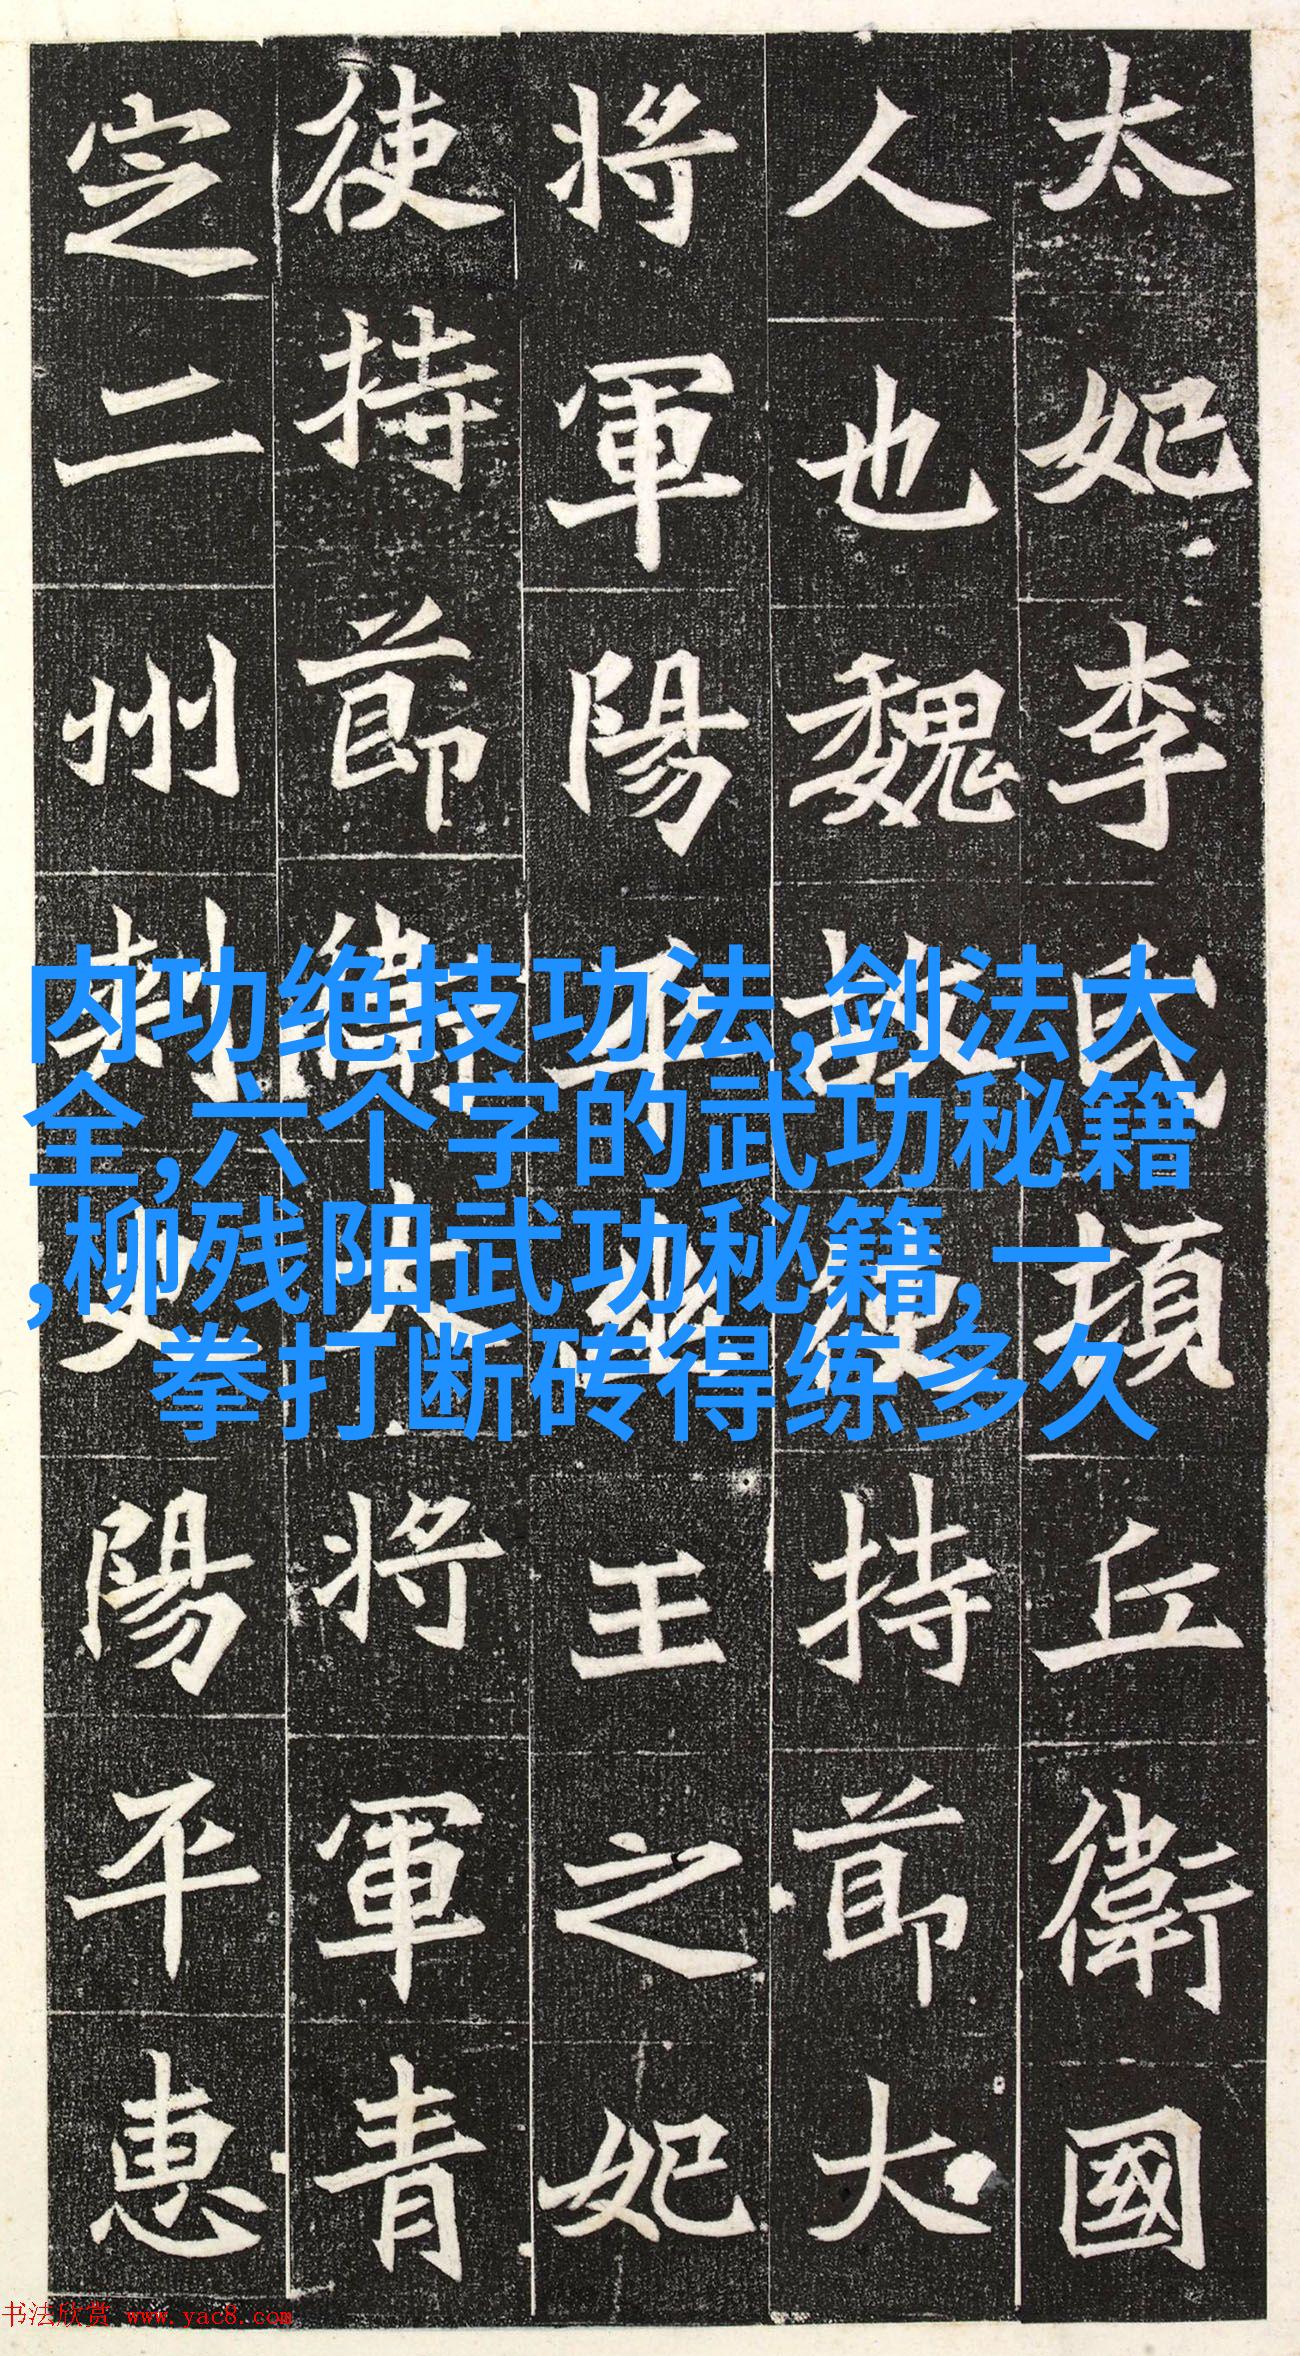 太妃李氏頓丘衛國
人也魏故使持節大
將軍陽平幽王之妃
使持節衛大將軍青
定二州刺史陽平惠
内功绝技功法,剑法大
全,六个字的武功秘籍
,柳残阳武功秘籍,一
拳打断砖得练多久
书法欣赏 www.yac8.com